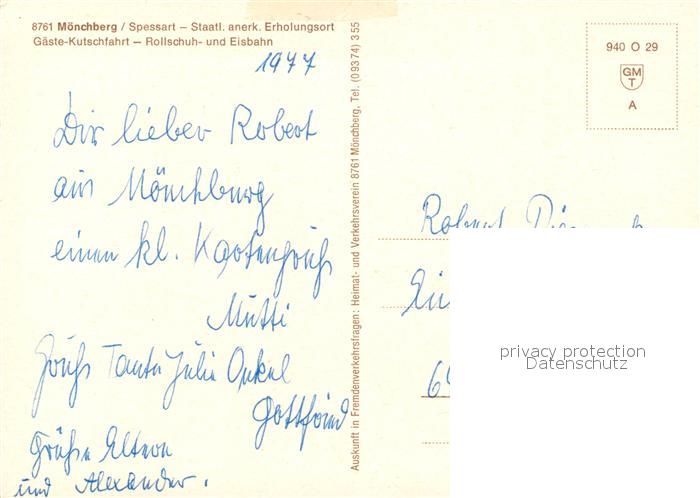 8761 Mönchberg / Spessart – Staatl. anerk. Erholungsort
Gäste-Kutschfahrt – Rollschuh- und Eisbahn
1977
Dir lieber Robert
aus Mönchberg
einen kl. Kartengruß
Mutti
Gruß Tante Julie Onkel
Gottfried
Grüße Eltern
und Alexander.
Auskunft in Fremdenverkehrsfragen: Heimat- und Verkehrsverein 8761 Mönchberg, Tel. (09374) 355
940 O 29
GM
T
A
Robert
privacy protection
Datenschutz